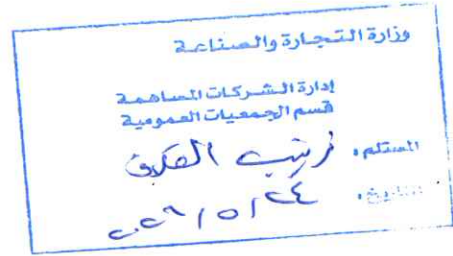 وزارة التجارة والصناعة
إدارة الشركات المساهمة
قسم الجمعيات العمومية
المستلم: زينب
التاريخ: ٢٠٢٦/٥/٢٤